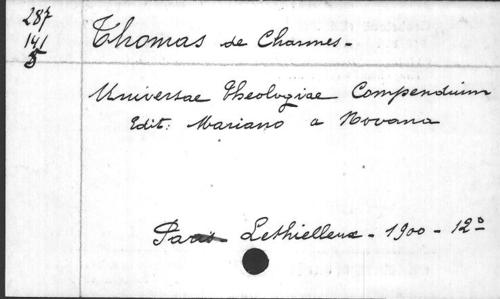 287
141
5
Thomas de Charmes -
Universae Theologiae Compendium
Edit: Mariano a Novana
Paris Lethielleux - 1900 - 12°